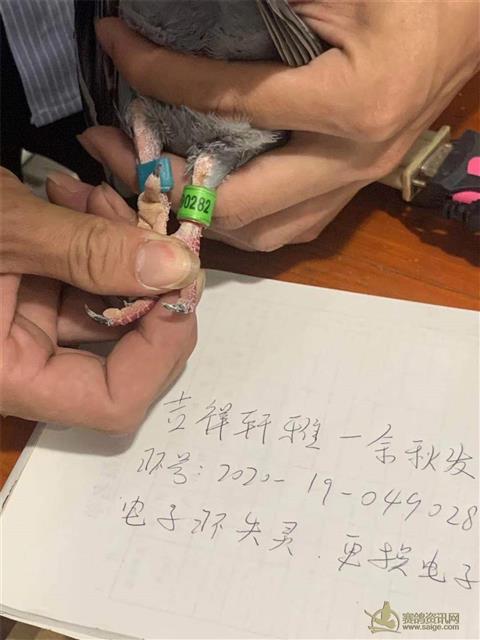 00282
吉祥轩雅一余秋发
环号:2020-19-049028
电子环失灵.更换电子
赛鸽资讯网
www.saige.com